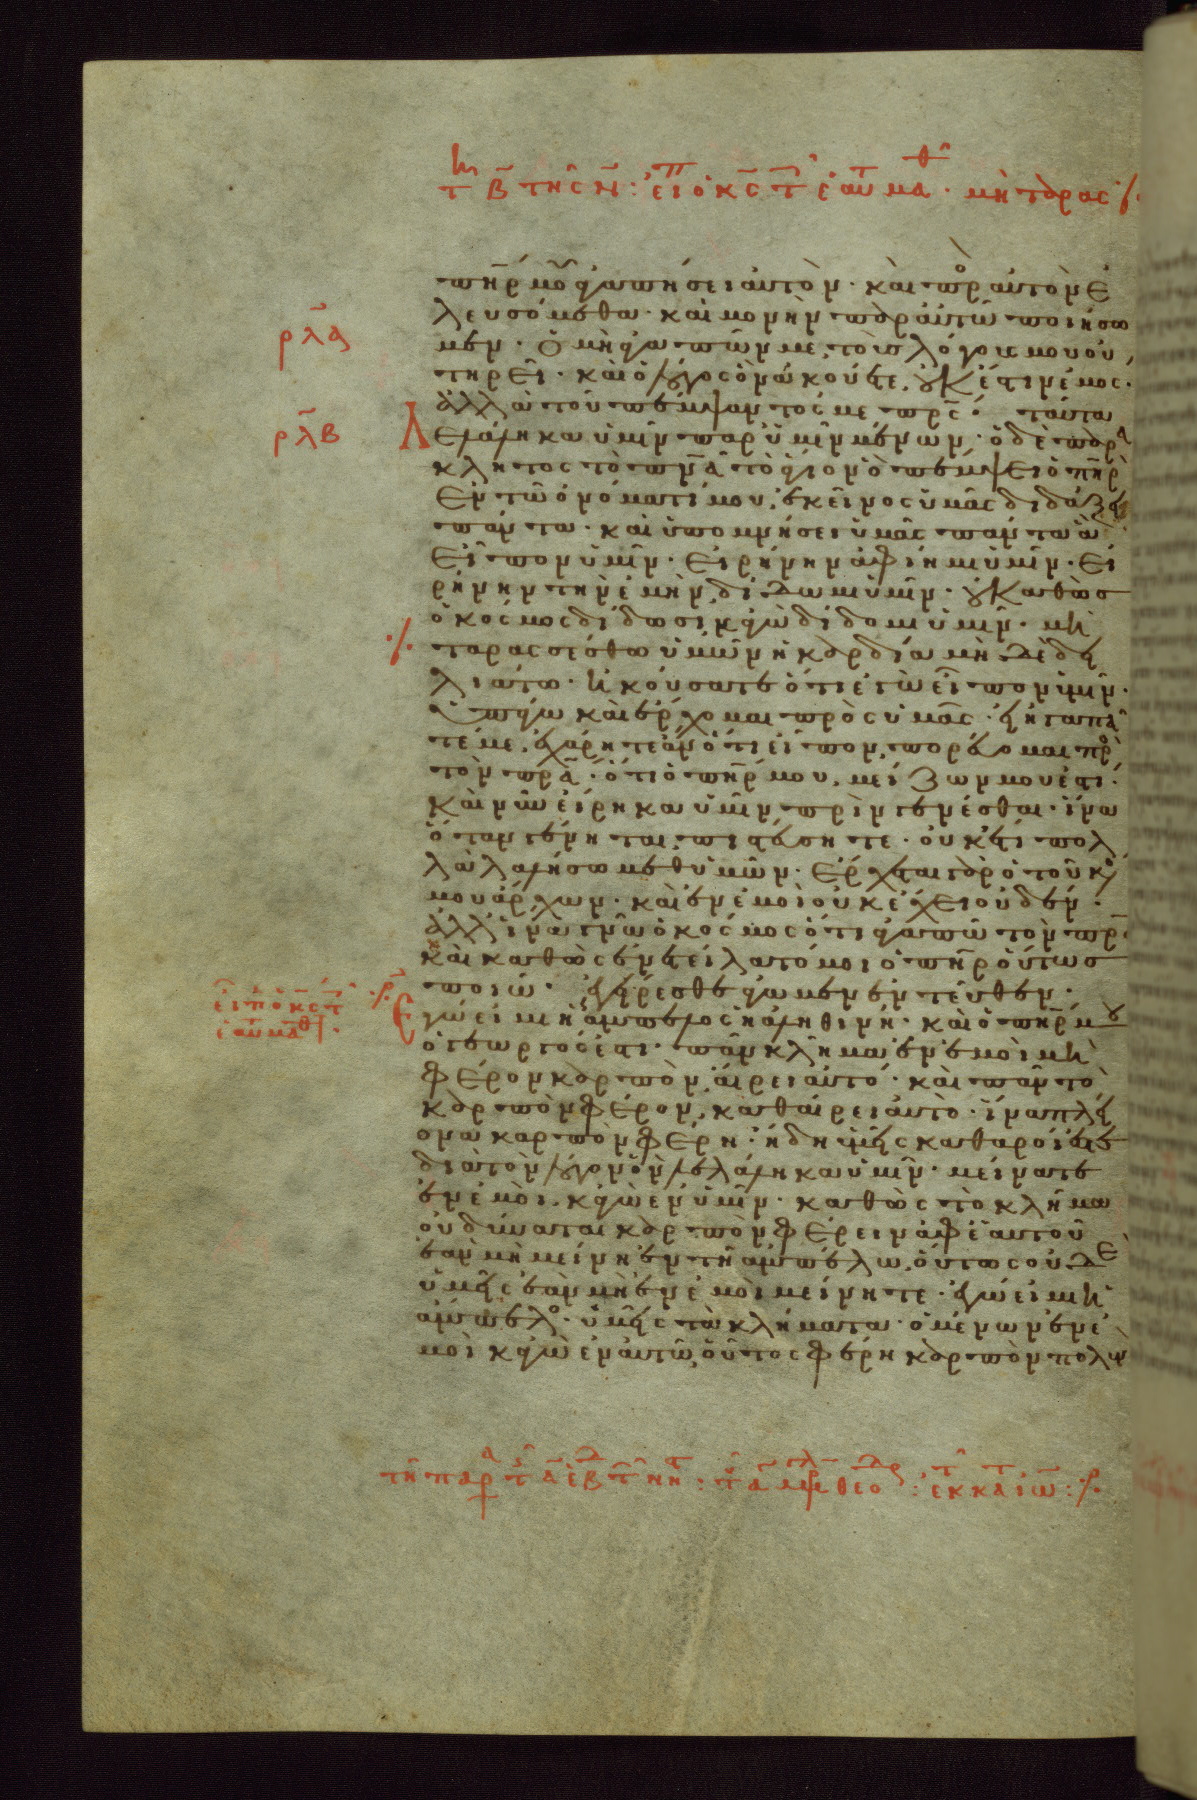 πη̅ρ μου ἀγαπήσει αὐτὸν· καὶ πρ αὐτὸν ἐ
λευσόμεθα· καὶ μονὴν παρ αὐτῶ ποιήσο
μεν· Ὁ μὴ ἀγαπῶν με, τοὺς λόγους μου οὐ
τηρεῖ· καὶ ὁ λόγος ὃν ἀκούετε, οὐκ ἔστιν ἐμος·
ἀλλὰ τοῦ πέμψαντός με πρ̅ς· ταῦτα
ρλα
ρλβ
λελάληκα ὑμῖν παρ ὑμῖν μένων· ὁ δὲ παρα
κλητος τὸ πν̅α τὸ ἅγιον ὃ πέμψει ὁ πη̅ρ
ἐν τῶ ὀνόματί μου, ἐκεῖνος ὑμᾶς διδάξει
πάντα· καὶ ὑπομνήσει ὑμᾶς πάντα ἃ
εἶπον ὑμῖν· εἰρήνην ἀφίημι ὑμῖν· εἰ
ρήνην τὴν ἐμὴν δίδωμι ὑμῖν· οὐ καθὼς
ὁ κόσμος δίδωσι, κἀγὼ δίδομι ὑμῖν· μὴ
ταρασσέσθω ὑμῶν ἡ καρδία μὴ δὲ δει
λιάτω· ἠκούσατε ὅτι ἐγὼ εἶπον ὑμῖν·
ὑπάγω καὶ ἔρχομαι πρὸς ὑμᾶς· εἰ ἠγαπᾶ
τέ με, ἐχάρητε ἂν ὅτι εἶπον, πορεύομαι πρ
τὸν πρ̅α· ὅτι ὁ πη̅ρ μου, μείζων μου ἐστί·
καὶ νῦν εἴρηκα ὑμῖν πρὶν γενέσθαι· ἵνα
ὅταν γένηται, πιστεύσητε· οὐκέτι πολ
λὰ λαλήσω μεθ ὑμῶν· ἔρχεται γὰρ ὁ τοῦ κό
μου ἄρχων· καὶ ἐν ἐμοὶ οὐκ ἔχει οὐδέν·
ἀλλ ἵνα γνῶ ὁ κόσμος ὅτι ἀγαπῶ τὸν πρ̅α
καὶ καθὼς ἐνετείλατό μοι ὁ πη̅ρ οὕτως
ποιῶ· ἐγείρεσθε ἄγωμεν ἐντεῦθεν·
ἐγώ εἰμι ἡ ἄμπελος ἡ ἀληθινή· καὶ ὁ πη̅ρ μου
ὁ γεωργός ἐστι· πᾶν κλῆμα ἐν ἐμοὶ μὴ
φέρον καρπὸν, αἴρει αὐτό· καὶ πᾶν τὸ
καρπὸν φέρον, καθαίρει αὐτὸ· ἵνα πλεί
ονα καρπὸν φέρη· ἤδη ὑμεῖς καθαροί ἐστε
διὰ τὸν λόγον ὃν λελάληκα ὑμῖν· μείνατε
ἐν ἐμοὶ, κἀγὼ ἐν ὑμῖν· καθὼς τὸ κλῆμα
οὐ δύναται καρπὸν φέρειν ἀφ ἑαυτοῦ
ἐὰν μὴ μείνη ἐν τῆ ἀμπέλω, οὕτως οὐδὲ
ὑμεῖς ἐὰν μὴ ἐν ἐμοὶ μείνητε· ἐγώ εἰμι ἡ
ἄμπελος· ὑμεῖς τὰ κλήματα· ὁ μένων ἐν ἐ
μοὶ κἀγὼ ἐν αὐτῶ, οὗτος φέρη καρπὸν πολὺ